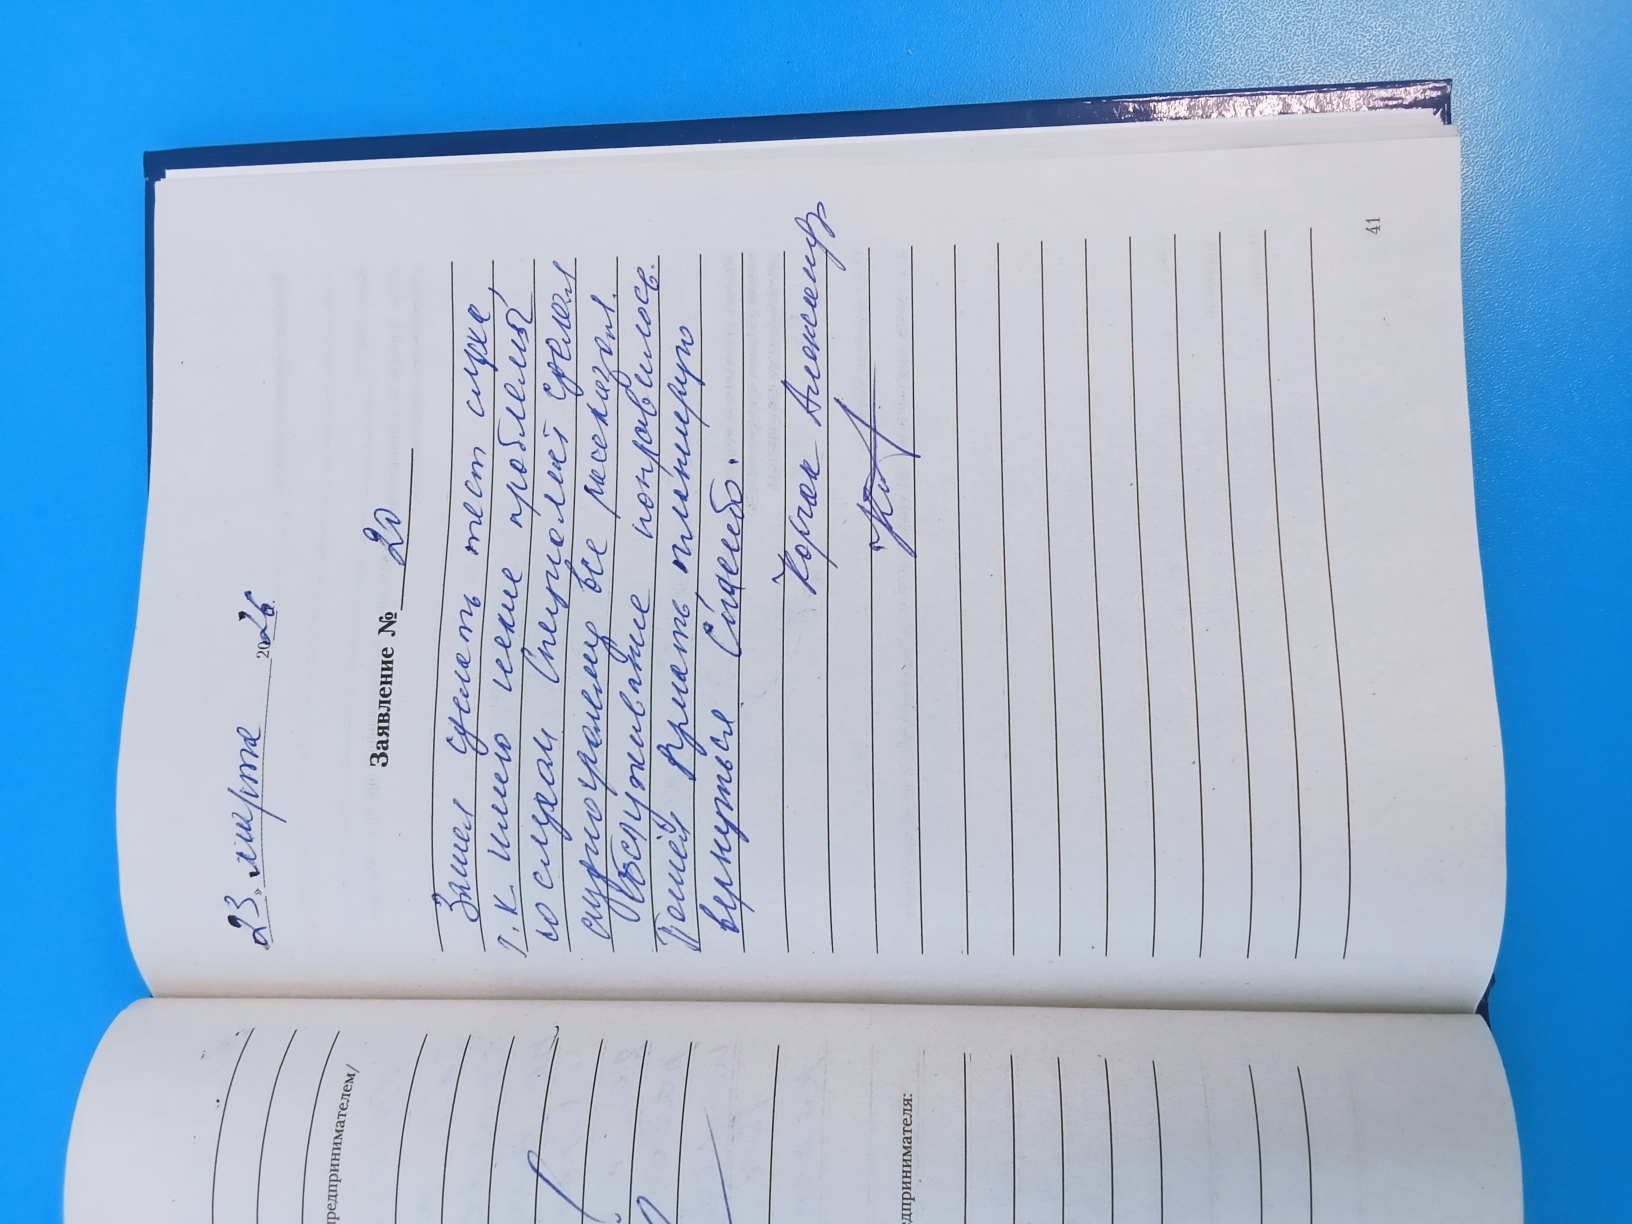 редпринимателем/
едпринимателя:
„23„ марта 2026.
Заявление № 20
Зашел сделать тест слуха,
т.к имею некие проблемы
со слухом Специалист сделал
аудиограмму все рассказал.
Обслуживание понравилось.
Теперь планирую
вернуться Спасибо.
Корчак Александр
41